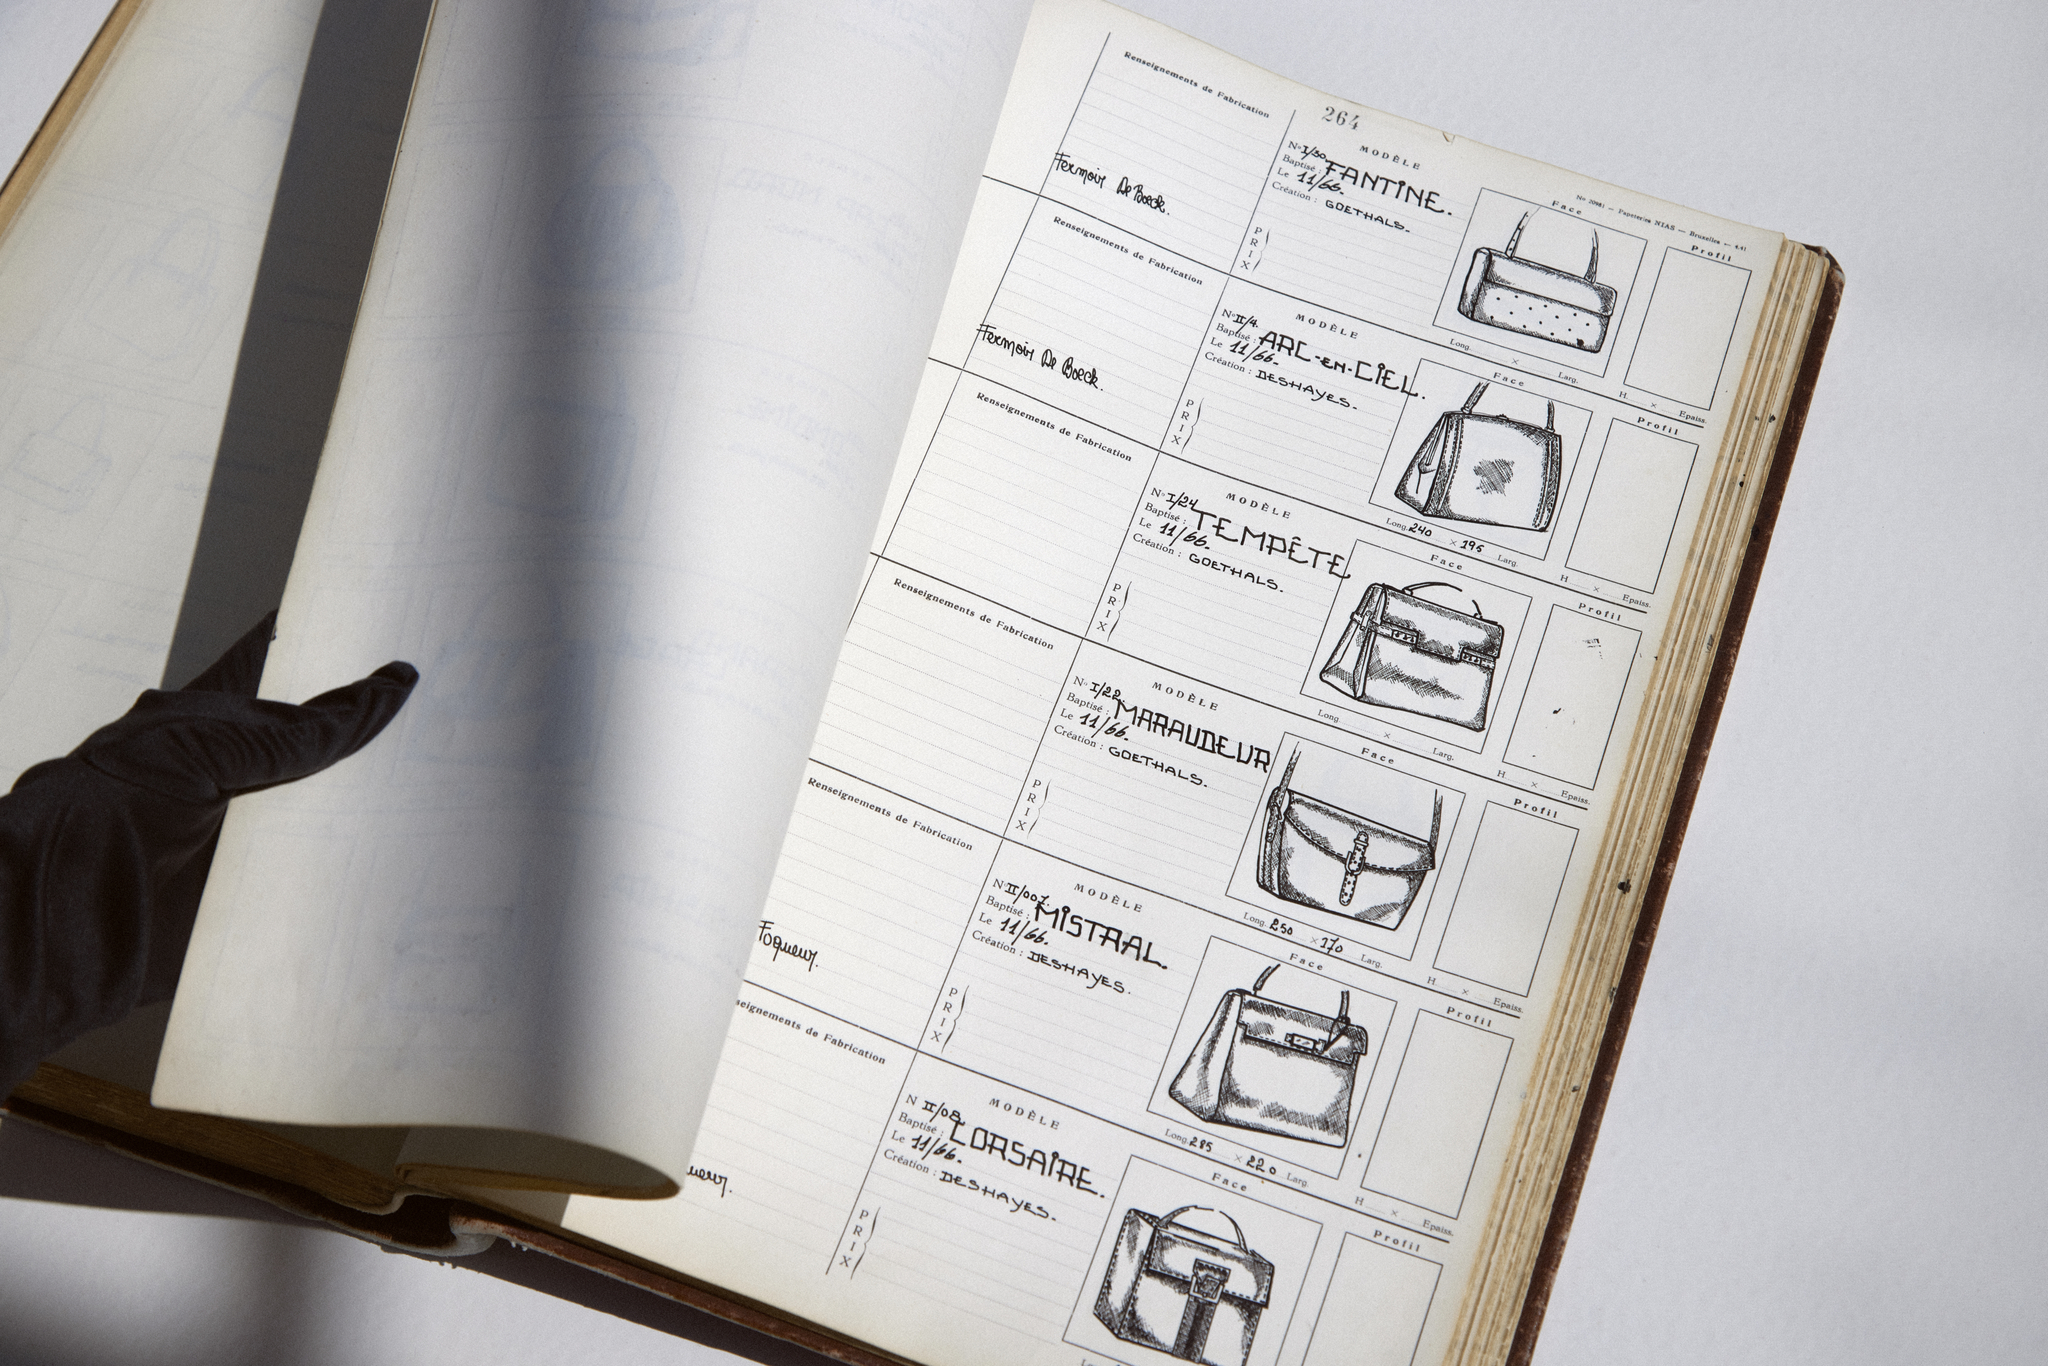 264
No 20981 — Papeteries NIAS — Bruxelles — 4.41
Renseignements de Fabrication
Fermoir De Boeck.
MODÈLE
No I/30
Baptisé : FANTINE.
Le 11/66.
Création : GOETHALS.
PRIX
Face
Long. × Larg.
Profil
H. × Epaiss.
Renseignements de Fabrication
Fermoir De Boeck.
MODÈLE
No II/4.
Baptisé : ARC-EN-CIEL.
Le 11/66.
Création : DESHAYES.
PRIX
Face
Long. 240 × 195 Larg.
Profil
H × Epaiss.
Renseignements de Fabrication
MODÈLE
No I/24
Baptisé : TEMPÊTE
Le 11/66.
Création : GOETHALS.
PRIX
Face
Long. × Larg.
Profil
H × Epaiss.
Renseignements de Fabrication
MODÈLE
No I/22.
Baptisé : MARAUDEUR
Le 11/66.
Création : GOETHALS.
PRIX
Face
Long. 250 × 170 Larg.
Profil
H. × Epaiss.
Renseignements de Fabrication
Foqueur.
MODÈLE
No II/007.
Baptisé : MISTRAL.
Le 11/66.
Création : DESHAYES.
PRIX
Face
Long. 285 × 220 Larg.
Profil
H × Epaiss.
seignements de Fabrication
ueur.
MODÈLE
N II/08.
Baptisé : CORSAIRE.
Le 11/66.
Création : DESHAYES.
PRIX
Face
Long
Profil